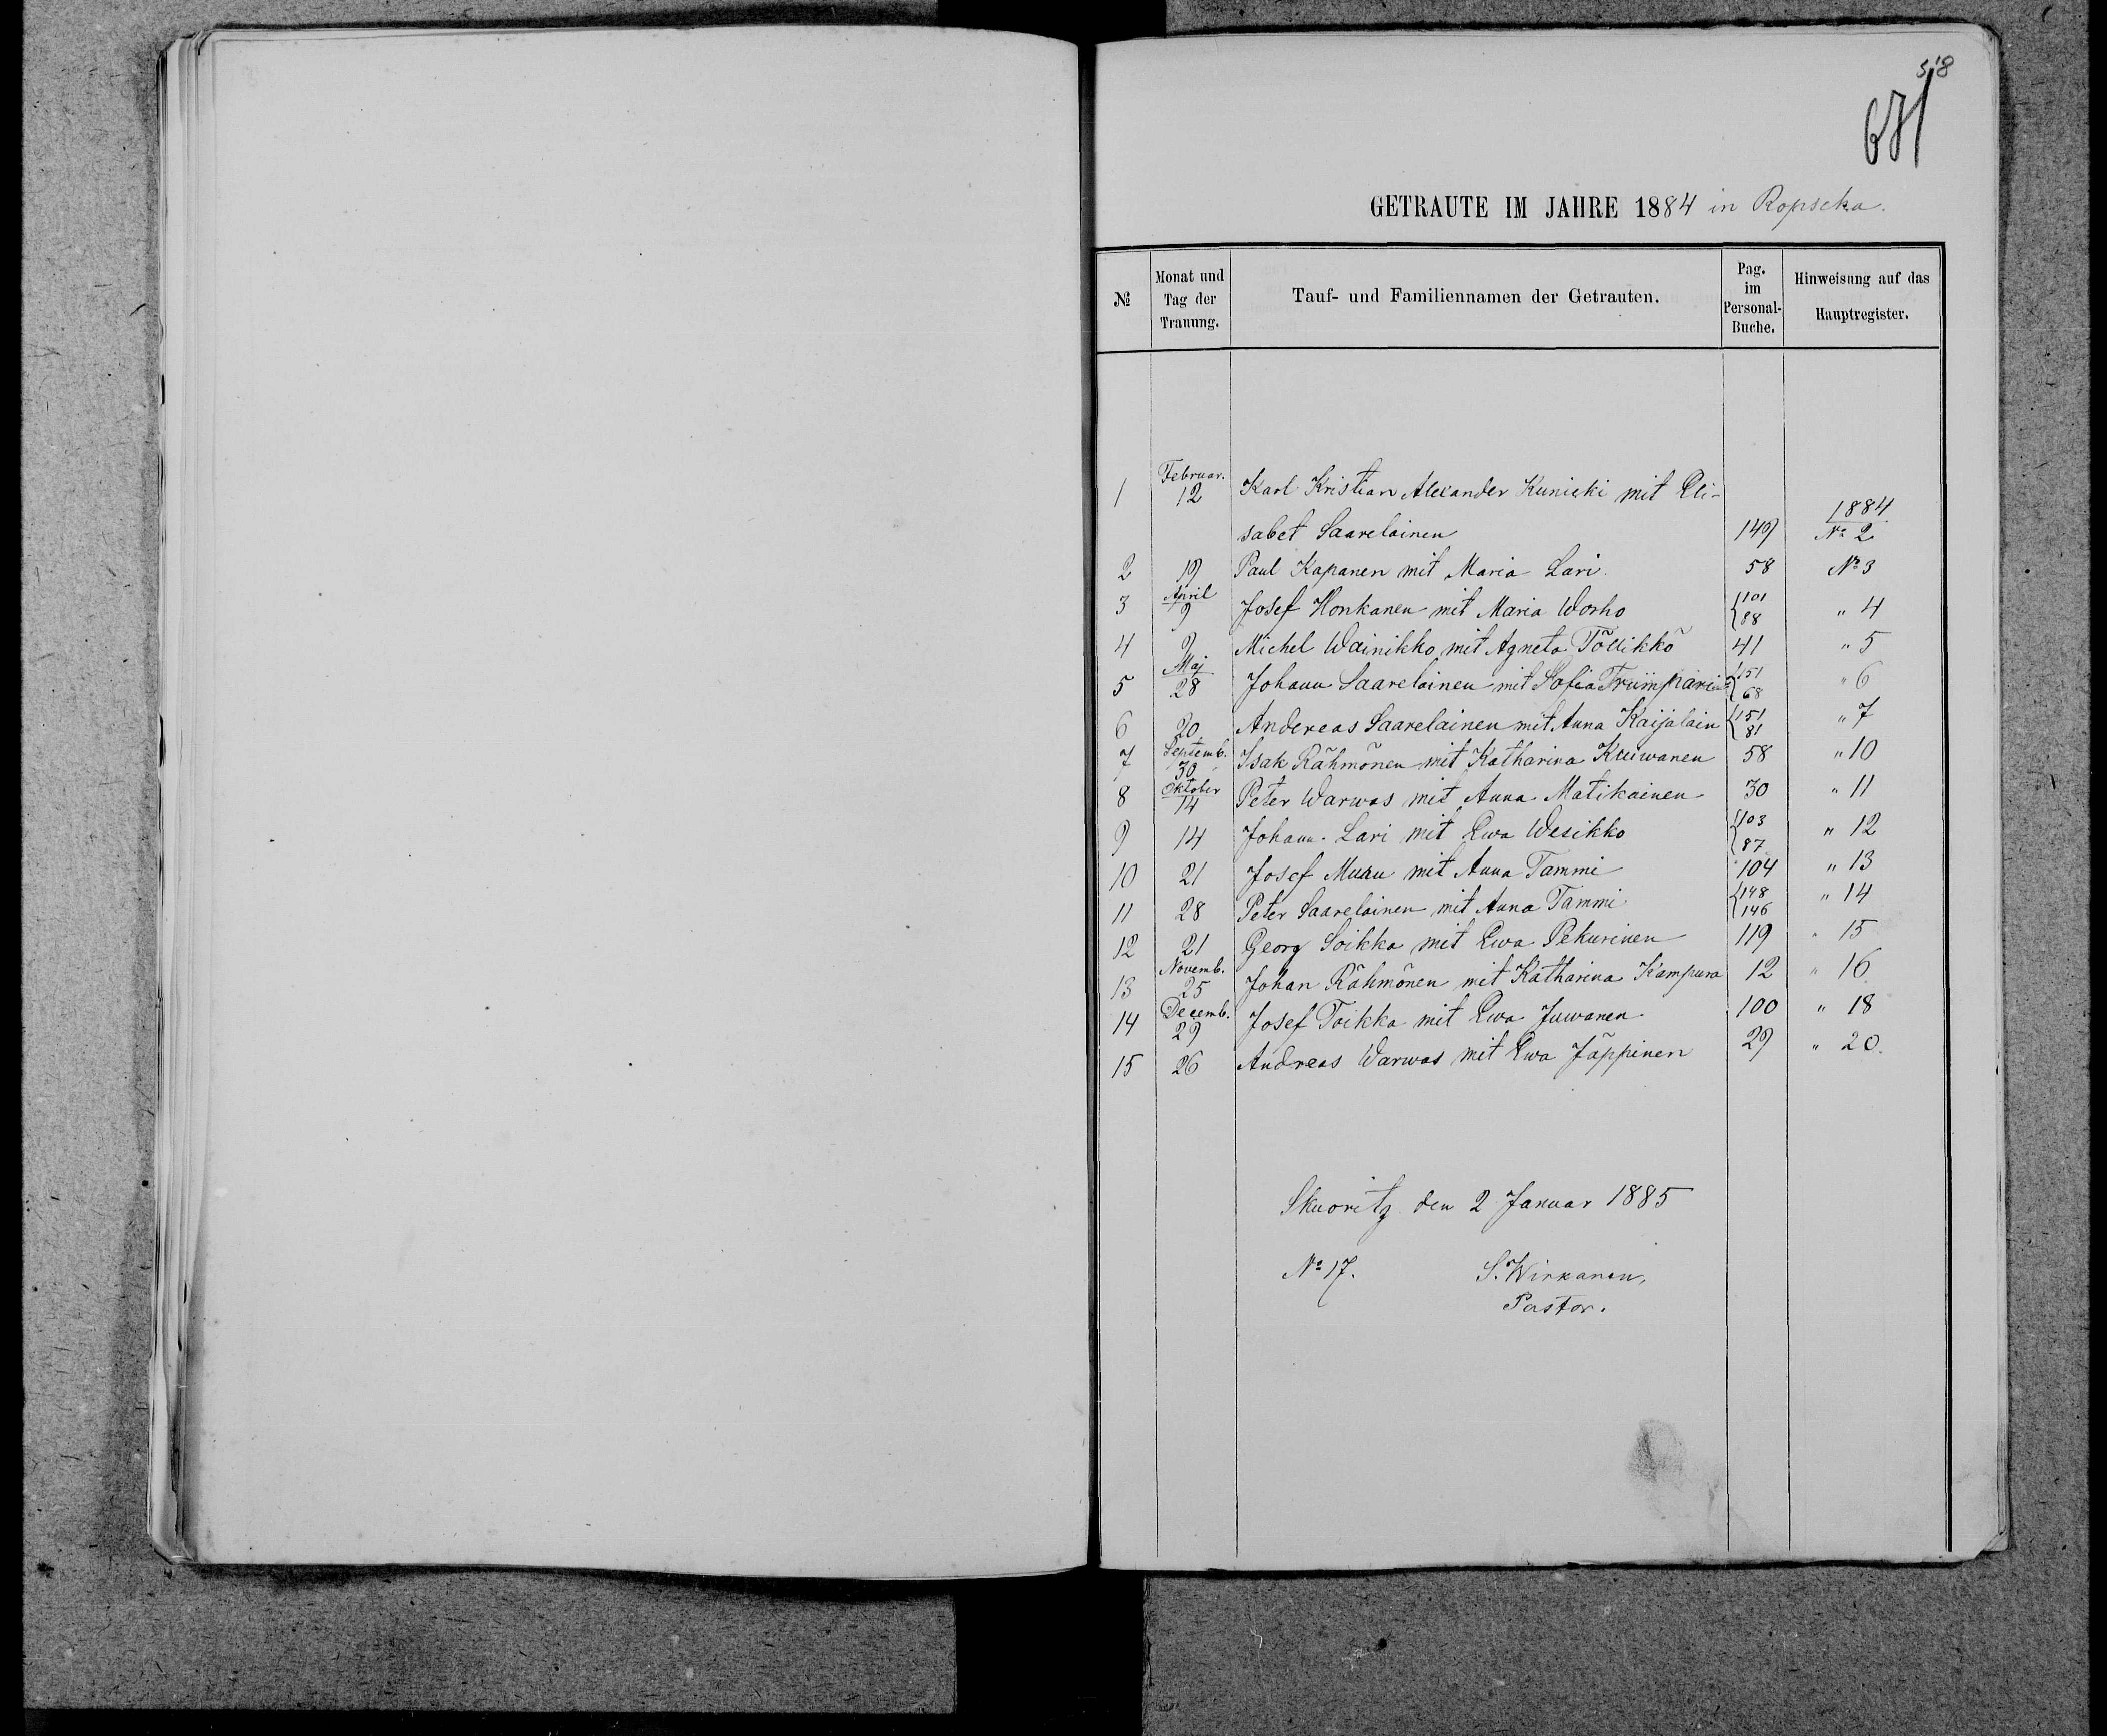 518
681
GETRAUTE IM JAHRE 1884 in Ropscha.
№ Monat und Tag der Trauung. Tauf- und Familiennamen der Getrauten. Pag. im Personal-Buche. Hinweisung auf das Hauptregister.
1 Februar. 12 Karl Kristian Alexander Kunicki mit Eli-
sabet Saarelainen 149 1884 No 2
2 19 Paul Kapanen mit Maria Lari. 58 No 3
3 April 9 Josef Honkanen mit Maria Worho {101 88 " 4
4 9 Michel Wainikko mit Agneta Töllikkö 41 " 5
5 Maj 28 Johann Saarelainen mit Sofia {151 68 " 6
6 20 Andereas Saarelainen mit Anna Kaijalain {151 81 " 7
7 Septemb. 30 Isak Rähmönen mit Katharina 58 " 10
8 Oktober 14 Peter Warwas mit Anna Matikainen 30 " 11
9 14 Johann Lari mit Ewa Wesikko {103 87 " 12
10 21 Josef Muku mit Anna Tammi 104 " 13
11 28 Peter Saarelainen mit Anna Tammi {148 146 " 14
12 21 Georg Soikka mit Ewa Pekurinen 119 " 15
13 Novemb. 25 Johan Rähmönen mit Katharina Kampura 12 " 16
14 Decemb. 29 Josef Toikka mit Ewa Juwanen 100 " 18
15 26 Andreas Warwas mit Ewa Jäppinen 29 " 20.
Skuoritz den 2 Januar 1885
No 17. S. Wirkanen,
Pastor.